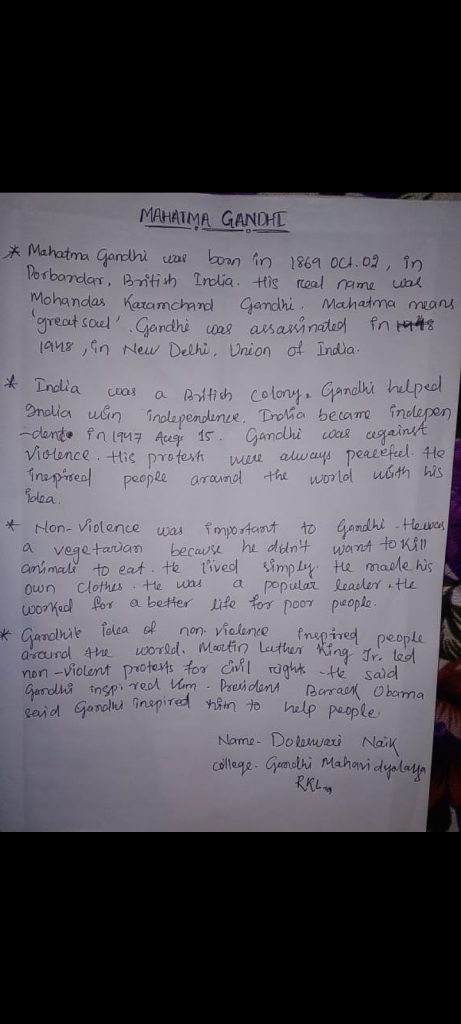 MAHATMA GANDHI
* Mahatma Gandhi was born in 1869 Oct. 02, in
Porbandar, British India. His real name was
Mohandas Karamchand Gandhi. Mahatma means
'great soul'. Gandhi was assassinated in 1948
1948, in New Delhi, Union of India.
* India was a British colony. Gandhi helped
India win independence. India became indepen
-dent in 1947 Aug 15. Gandhi was against
violence. His protest were always peaceful. He
inspired people around the world with his
idea.
* Non-violence was important to Gandhi. He was
a vegetarian because he didn't want to kill
animals to eat. He lived simply. He made his
own clothes. He was a popular leader. He
worked for a better life for poor people.
* Gandhi's idea of non-violence inspired people
around the world. Martin Luther King Jr. led
non-violent protests for civil rights. He said
Gandhi inspired him. President Barack Obama
said Gandhi inspired him to help people
Name- Doleswari Naik
college- Gandhi Mahavidyalaya
RKL